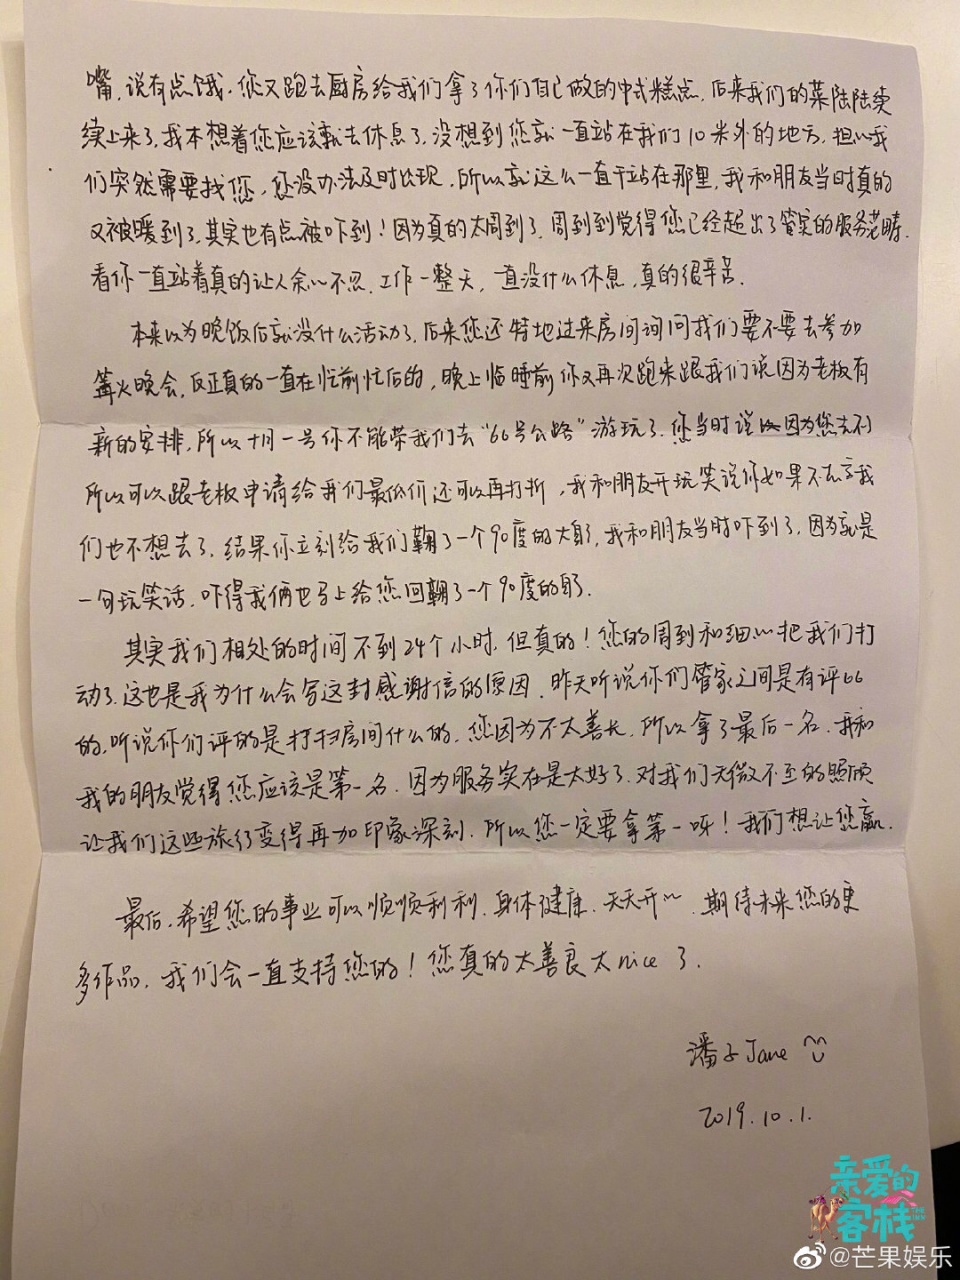 嘴，说有点饿。您又跑去厨房给我们拿了你们自己做的中式糕点，后来我们的菜陆陆续
续上来了，我本想着您应该就去休息了，没想到您就一直站在我们10米外的地方，担心我
们突然需要找您，您没办法及时出现，所以就这么一直干站在那里，我和朋友当时真的
又被暖到了，其实也有点被吓到！因为真的太周到了，周到到觉得您已经超出了管家的服务范畴，
看你一直站着真的让人于心不忍，工作一整天，一直没什么休息，真的很辛苦。
本来以为晚饭后就没什么活动了，后来您还特地过来房间询问我们要不要去参加
篝火晚会，反正真的一直在忙前忙后的，晚上临睡前你又再次跑来跟我们说因为老板有
新的安排，所以十月一号你不能带我们去“66号公路”游玩了，您当时说因为您去不了
所以可以跟老板申请给我们最低价还可以再打折，我和朋友开玩笑说你如果不去了我
们也不想去了，结果你立刻给我们鞠了一个90度的大躬，我和朋友当时吓到了，因为就是
一句玩笑话，吓得我俩也马上给您回鞠了一个90度的躬。
其实我们相处的时间不到24个小时，但真的！您的周到和细心把我们打
动了，这也是我为什么会写这封感谢信的原因，昨天听说你们管家之间是有评比
的，听说你们评的是打扫房间什么的，您因为不太善长，所以拿了最后一名，我和
我的朋友觉得您应该是第一名，因为服务实在是太好了，对我们无微不至的照顾
让我们这些旅行变得再加印象深刻，所以您一定要拿第一呀！我们想让您赢。
最后，希望您的事业可以顺顺利利，身体健康，天天开心，期待未来您的更
多作品，我们会一直支持您的！您真的太善良太nice了。
潘子Jane
2019.10.1.
亲爱的
客栈
@芒果娱乐